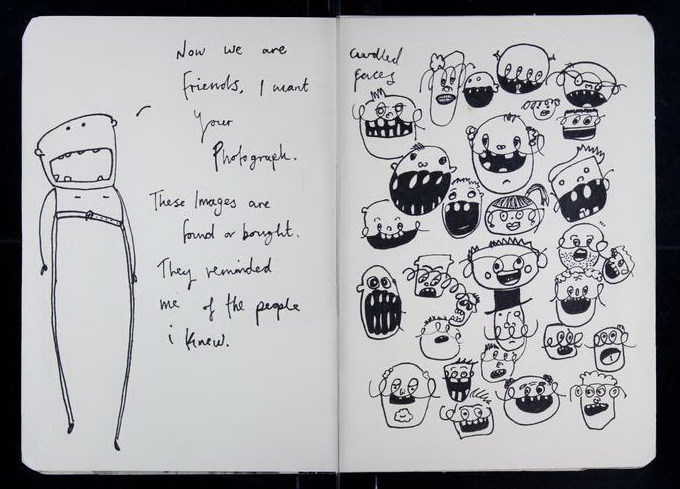 Now we are
friends, I want
your
Photograph.
These Images are
found or bought.
They reminded
me of the people
i knew.
curdled
faces